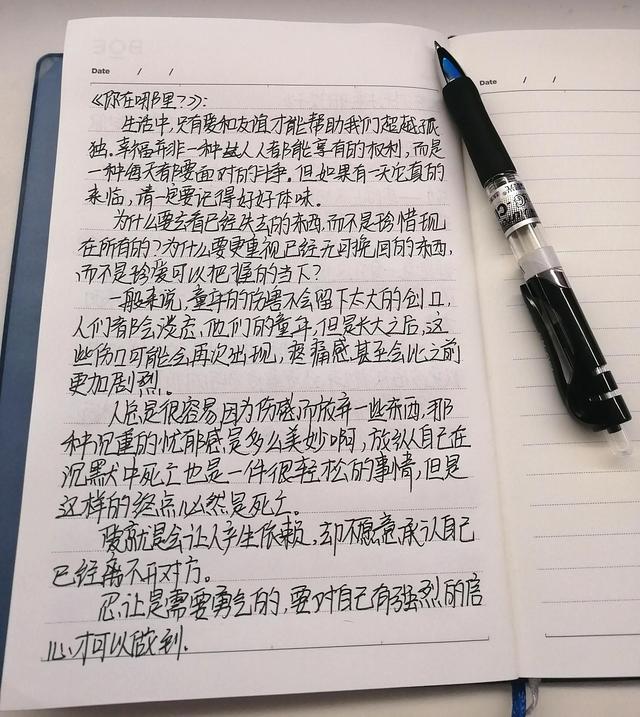 Date / /
《你在哪里?》:
生活中,只有爱和友谊才能帮助我们超越孤
独。幸福并非一种人人都能享有的权利,而是
一种每天都要面对的斗争。但如果有一天它真的
来临,请一定要记得好好体味。
为什么要去看已经失去的东西,而不是珍惜现
在所有的?为什么要更重视已经无可挽回的东西,
而不是珍爱可以把握的当下?
一般来说,童年的伤害不会留下太大的创口,
人们都会淡忘他们的童年,但是长大之后,这
些伤口可能会再次出现,疼痛感甚至会比之前
更加剧烈。
人总是很容易因为伤感而放弃一些东西,那
种沉重的忧郁感是多么美妙啊,放纵自己在
沉默中死亡也是一件很轻松的事情,但是
这样的终点必然是死亡。
爱就是会让人产生依赖,却不愿意承认自己
已经离不开对方。
忍让是需要勇气的,要对自己有强烈的信
心才可以做到。
Date / /